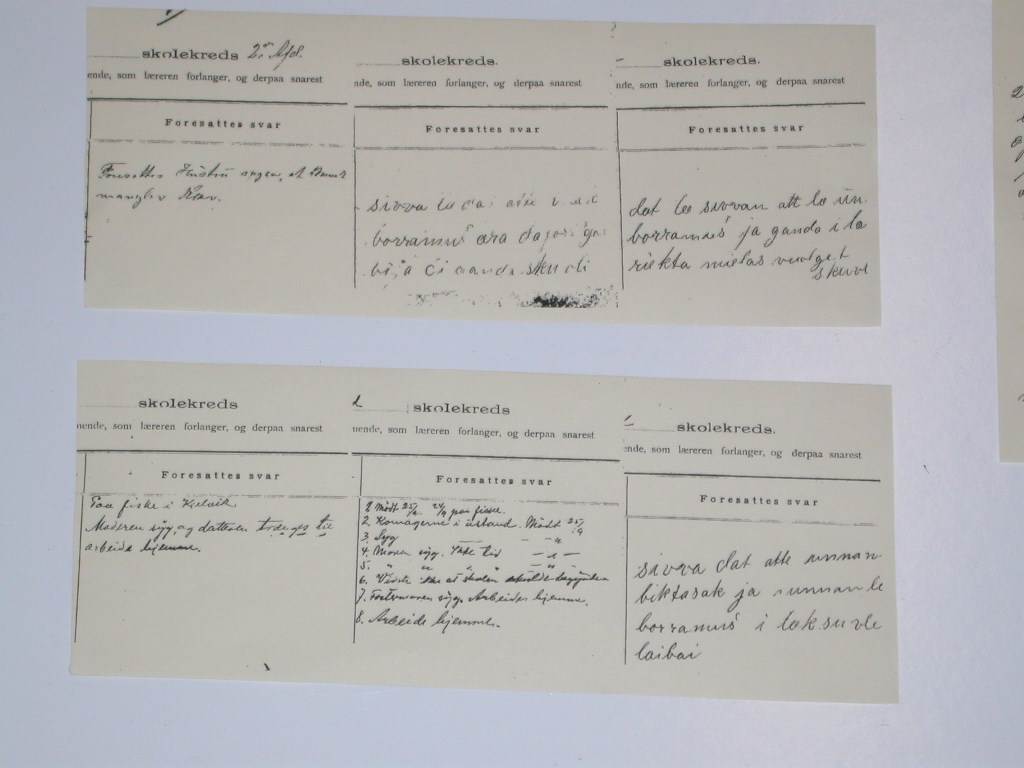 skolekreds 2den Afd.
ende, som læreren forlanger, og derpaa snarest
Foresattes svar
Foresattes Hustru at
mangler
skolekreds.
nde, som læreren forlanger, og derpaa snarest
Foresattes svar
sivva le
borramuš æra
ja či ganda skuli
skolekreds.
nde, som læreren forlanger, og derpaa snarest
Foresattes svar
dat lea sivvan att le un
borramuš ja ganda i la
riekta mielas vuolget
skuvl
skolekreds
nende, som læreren forlanger, og derpaa snarest
Foresattes svar
Paa fiske i
Moderen syg, og datteren trænges til
arbeide hjemme.
skolekreds
nende, som læreren forlanger, og derpaa snarest
Foresattes svar
1. Mødt paa fiske.
2. Komagerne i ustand. Mødt
3. Syg
4. Moren syg. Ikke tid
5.
6. Vidste ikke at skolen skulde begynde
7. syg. Arbeider hjemme.
8. Arbeide hjemme.
skolekreds.
ende, som læreren forlanger, og derpaa snarest
Foresattes svar
sivva dat atte unnan
biktasak ja unnan le
borramuš i lak suvle
laibai